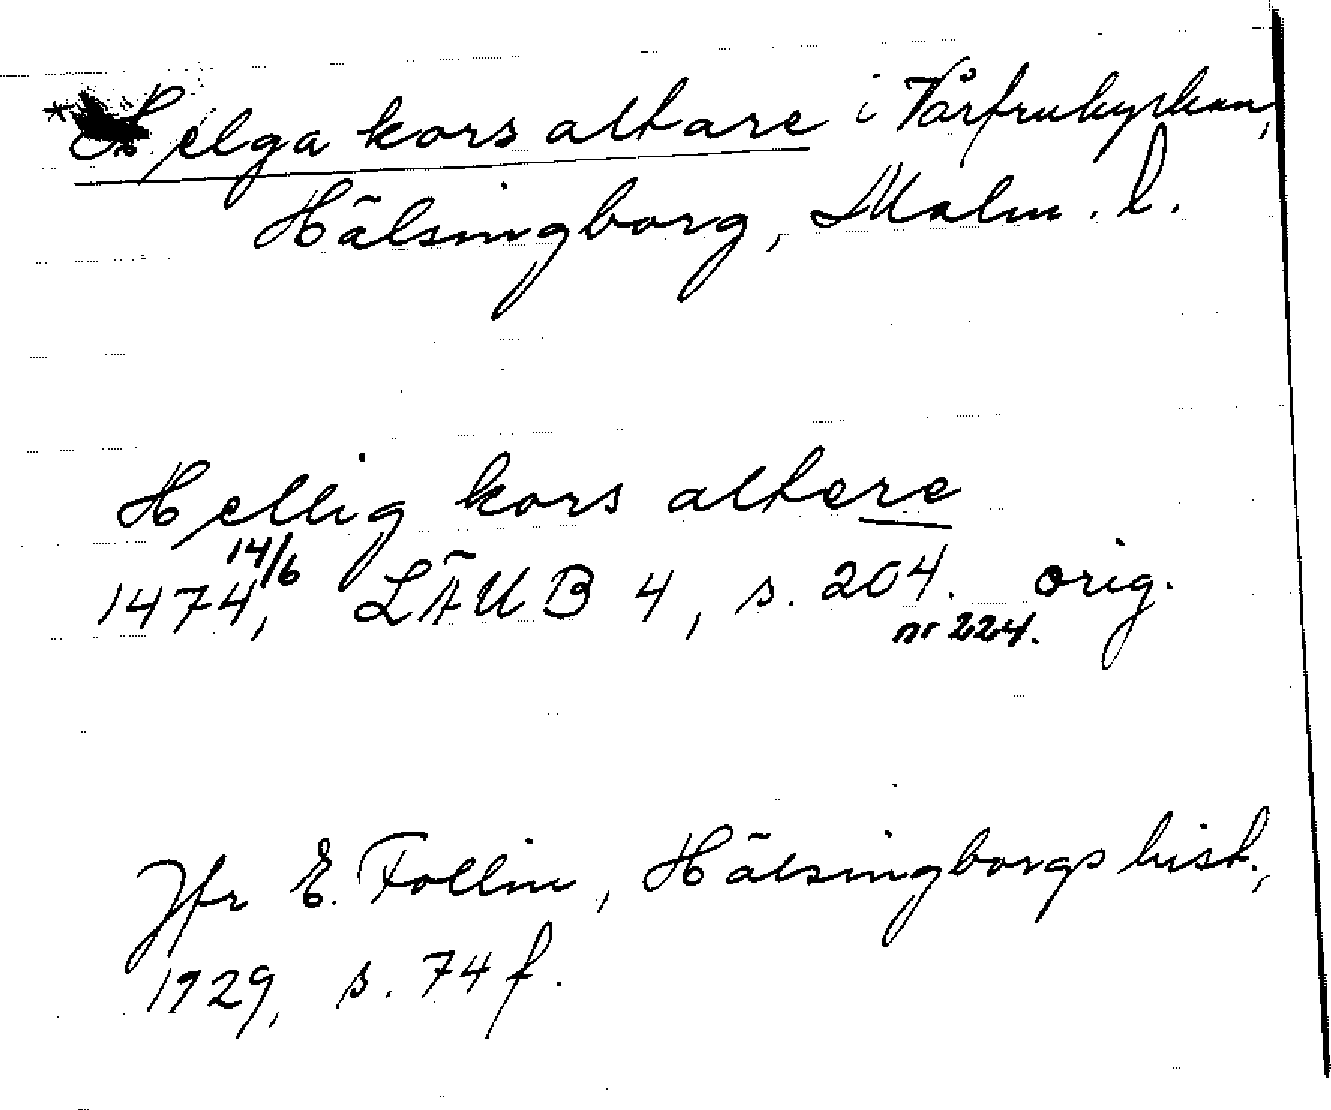 *Helga kors altare i Vårfrukyrkan,
Hälsingborg, Malm. l.
Hellig kors altere
1474 14/6, LÄUB 4, s. 204. orig.
nr 224.
Jfr E. Follin, Hälsingborgs hist.,
1929, s. 74 f.